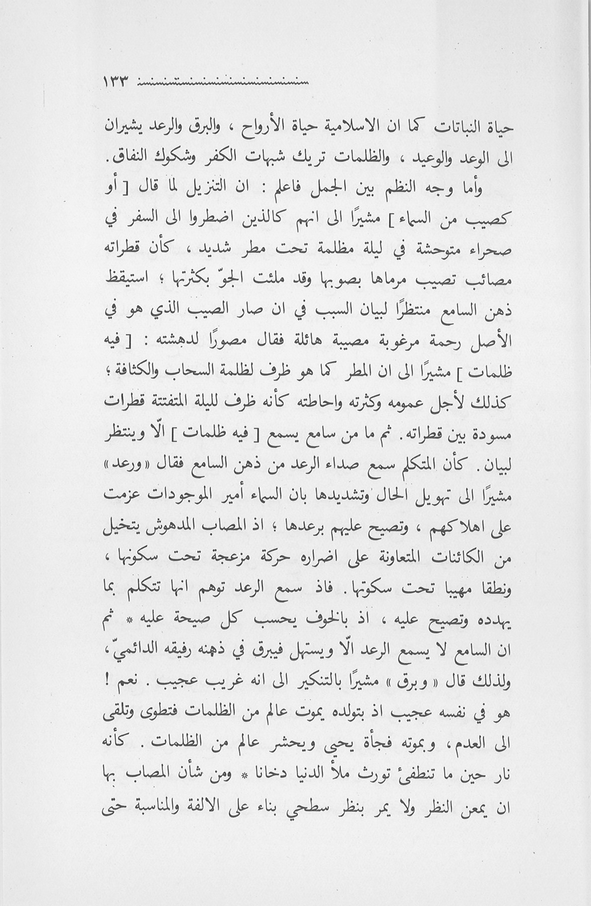 ١٣٣
حياة النباتات كما ان الاسلامية حياة الأرواح ، والبرق والرعد يشيران
الى الوعد والوعيد ، والظلمات تريك شبهات الكفر وشكوك النفاق.
وأما وجه النظم بين الجمل فاعلم : ان التنزيل لما قال [ أو
كصيب من السماء ] مشيرًا الى انهم كالذين اضطروا الى السفر في
صحراء متوحشة في ليلة مظلمة تحت مطر شديد ، كأن قطراته
مصائب تصيب مرماها بصوبها وقد ملئت الجوّ بكثرتها ؛ استيقظ
ذهن السامع منتظرًا لبيان السبب في ان صار الصيب الذي هو في
الأصل رحمة مرغوبة مصيبة هائلة فقال مصورًا لدهشته : [ فيه
ظلمات ] مشيرًا الى ان المطر كما هو ظرف لظلمة السحاب والكثافة ؛
كذلك لأجل عمومه وكثرته واحاطته كأنه ظرف لليلة المتفتتة قطرات
مسودة بين قطراته. ثم ما من سامع يسمع [ فيه ظلمات ] الّا وينتظر
لبيان. كأن المتكلم سمع صداء الرعد من ذهن السامع فقال «ورعد»
مشيرًا الى تهويل الحال وتشديدها بان السماء أمير الموجودات عزمت
على اهلاكهم ، وتصيح عليهم برعدها ؛ اذ المصاب المدهوش يتخيل
من الكائنات المتعاونة على اضراره حركة مزعجة تحت سكونها ،
ونطقا مهيبا تحت سكوتها. فاذ سمع الرعد توهم انها تتكلم بما
يهدده وتصيح عليه ، اذ بالخوف يحسب كل صيحة عليه * ثم
ان السامع لا يسمع الرعد الّا ويستهل فيبرق في ذهنه رفيقه الدائميّ،
ولذلك قال « وبرق » مشيرًا بالتنكير الى انه غريب عجيب . نعم !
هو في نفسه عجيب اذ بتولده يموت عالم من الظلمات فتطوى وتلقى
الى العدم، وبموته فجأة يحيى ويحشر عالم من الظلمات . كأنه
نار حين ما تنطفئ تورث ملأ الدنيا دخانا * ومن شأن المصاب بها
ان يمعن النظر ولا يمر بنظر سطحي بناء على الالفة والمناسبة حتى